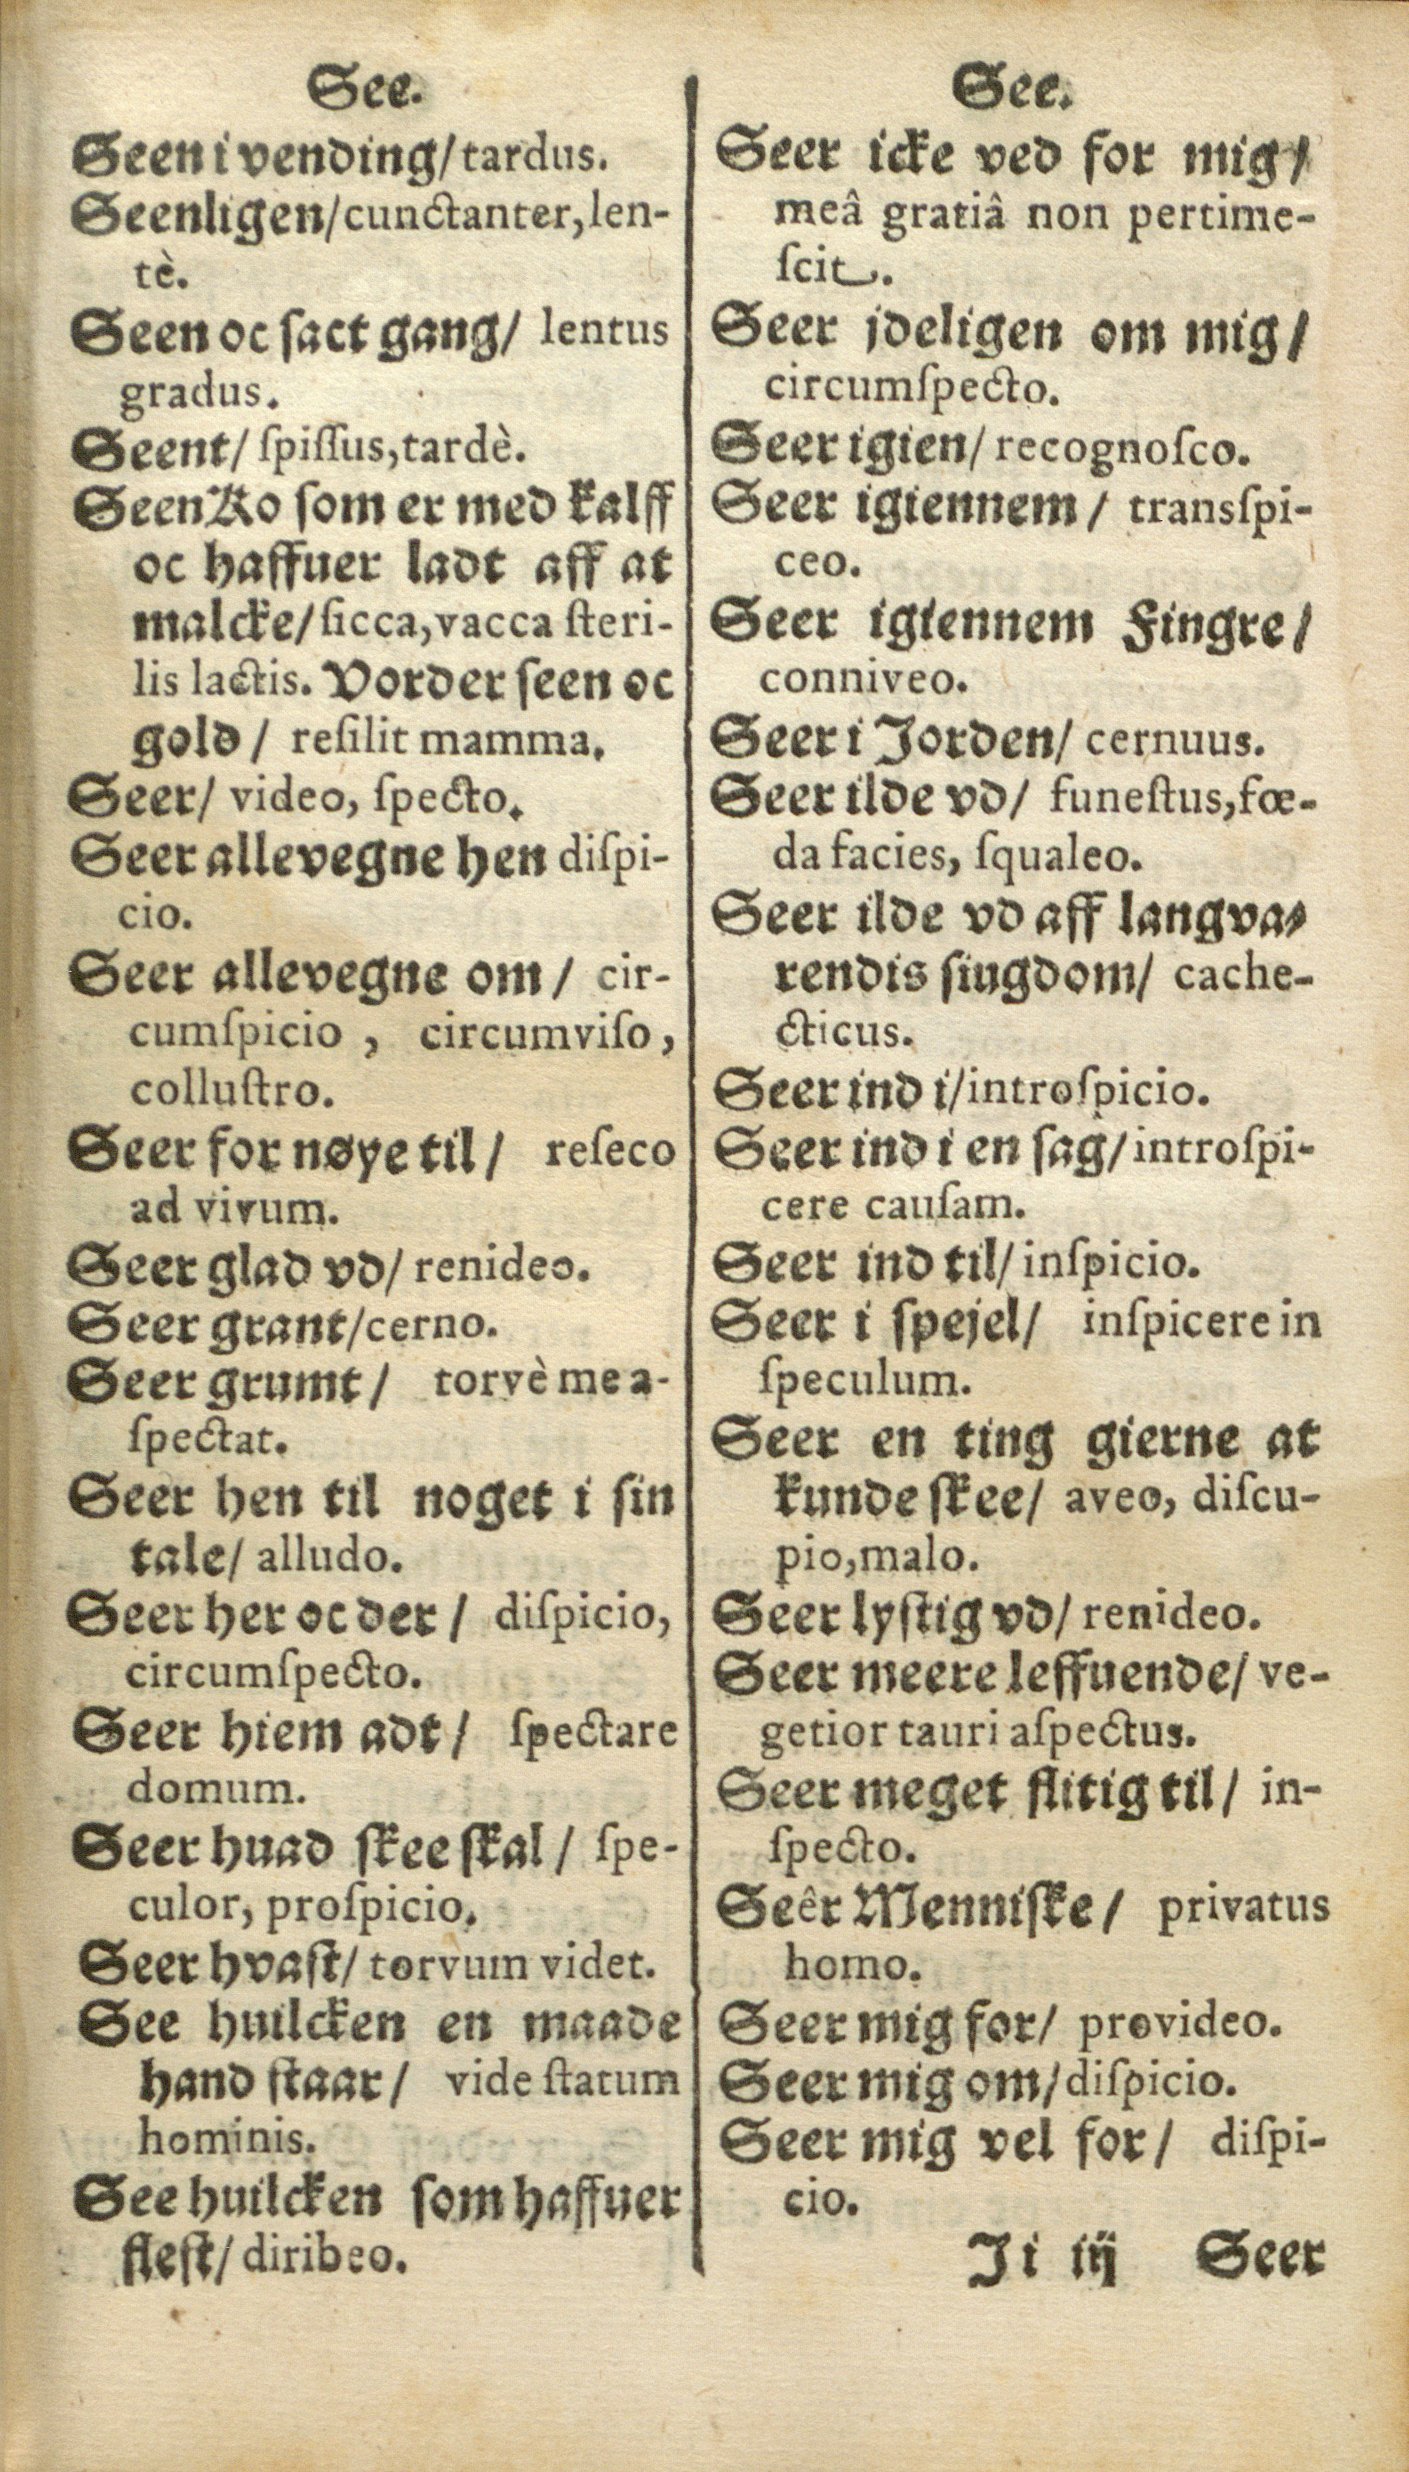 See.
Seen i vending/ tardus.
Seenligen/ cunctanter, len-
tè.
Seen oc ſact gang/ lentus
gradus.
Seent/ ſpiſſus, tardè.
Seen Ko ſom er med kalff
oc haffuer ladt aff at
malcke/ ſicca, vacca ſteri-
lis lactis. Vorder ſeen oc
gold/ reſilit mamma.
Seer/ video, ſpecto.
Seer allevegne hen diſpi-
cio.
Seer allevegne om/ cir-
cumſpicio, circumviſo,
colluſtro.
Seer for nøye til/ reſeco
ad vivum.
Seer glad vd/ renideo.
Seer grant/ cerno.
Seer grumt/ torvè me a-
ſpectat.
Seer hen til noget i ſin
tale/ alludo.
Seer her oc der/ diſpicio,
circumſpecto.
Seer hiem adt/ ſpectare
domum.
Seer huad ſkee ſkal/ ſpe-
culor, proſpicio.
Seer hvaſt/ torvum videt.
See huilcken en maade
hand ſtaar/ vide ſtatum
hominis.
See huilcken ſom haffuer
fleſt/ diribeo.
See.
Seer icke ved for mig/
meâ gratiâ non pertime-
ſcit.
Seer jdeligen om mig/
circumſpecto.
Seer igien/ recognoſco.
Seer igiennem/ transſpi-
ceo.
Seer igiennem Fingre/
conniveo.
Seer i Jorden/ cernuus.
Seer ilde vd/ funeſtus, fœ-
da facies, ſqualeo.
Seer ilde vd aff langva-
rendis ſiugdom/ cache-
cticus.
Seer ind i/ introſpicio.
Seer ind i en ſag/ introſpi-
cere cauſam.
Seer ind til/ inſpicio.
Seer i ſpejel/ inſpicere in
ſpeculum.
Seer en ting gierne at
kunde ſkee/ aveo, diſcu-
pio, malo.
Seer lyſtig vd/ renideo.
Seer meere leffuende/ ve-
getior tauri aſpectus.
Seer meget flitig til/ in-
ſpecto.
Seêr Menniſke/ privatus
homo.
Seer mig for/ provideo.
Seer mig om/ diſpicio.
Seer mig vel for/ diſpi-
cio.
Ji iij Seer